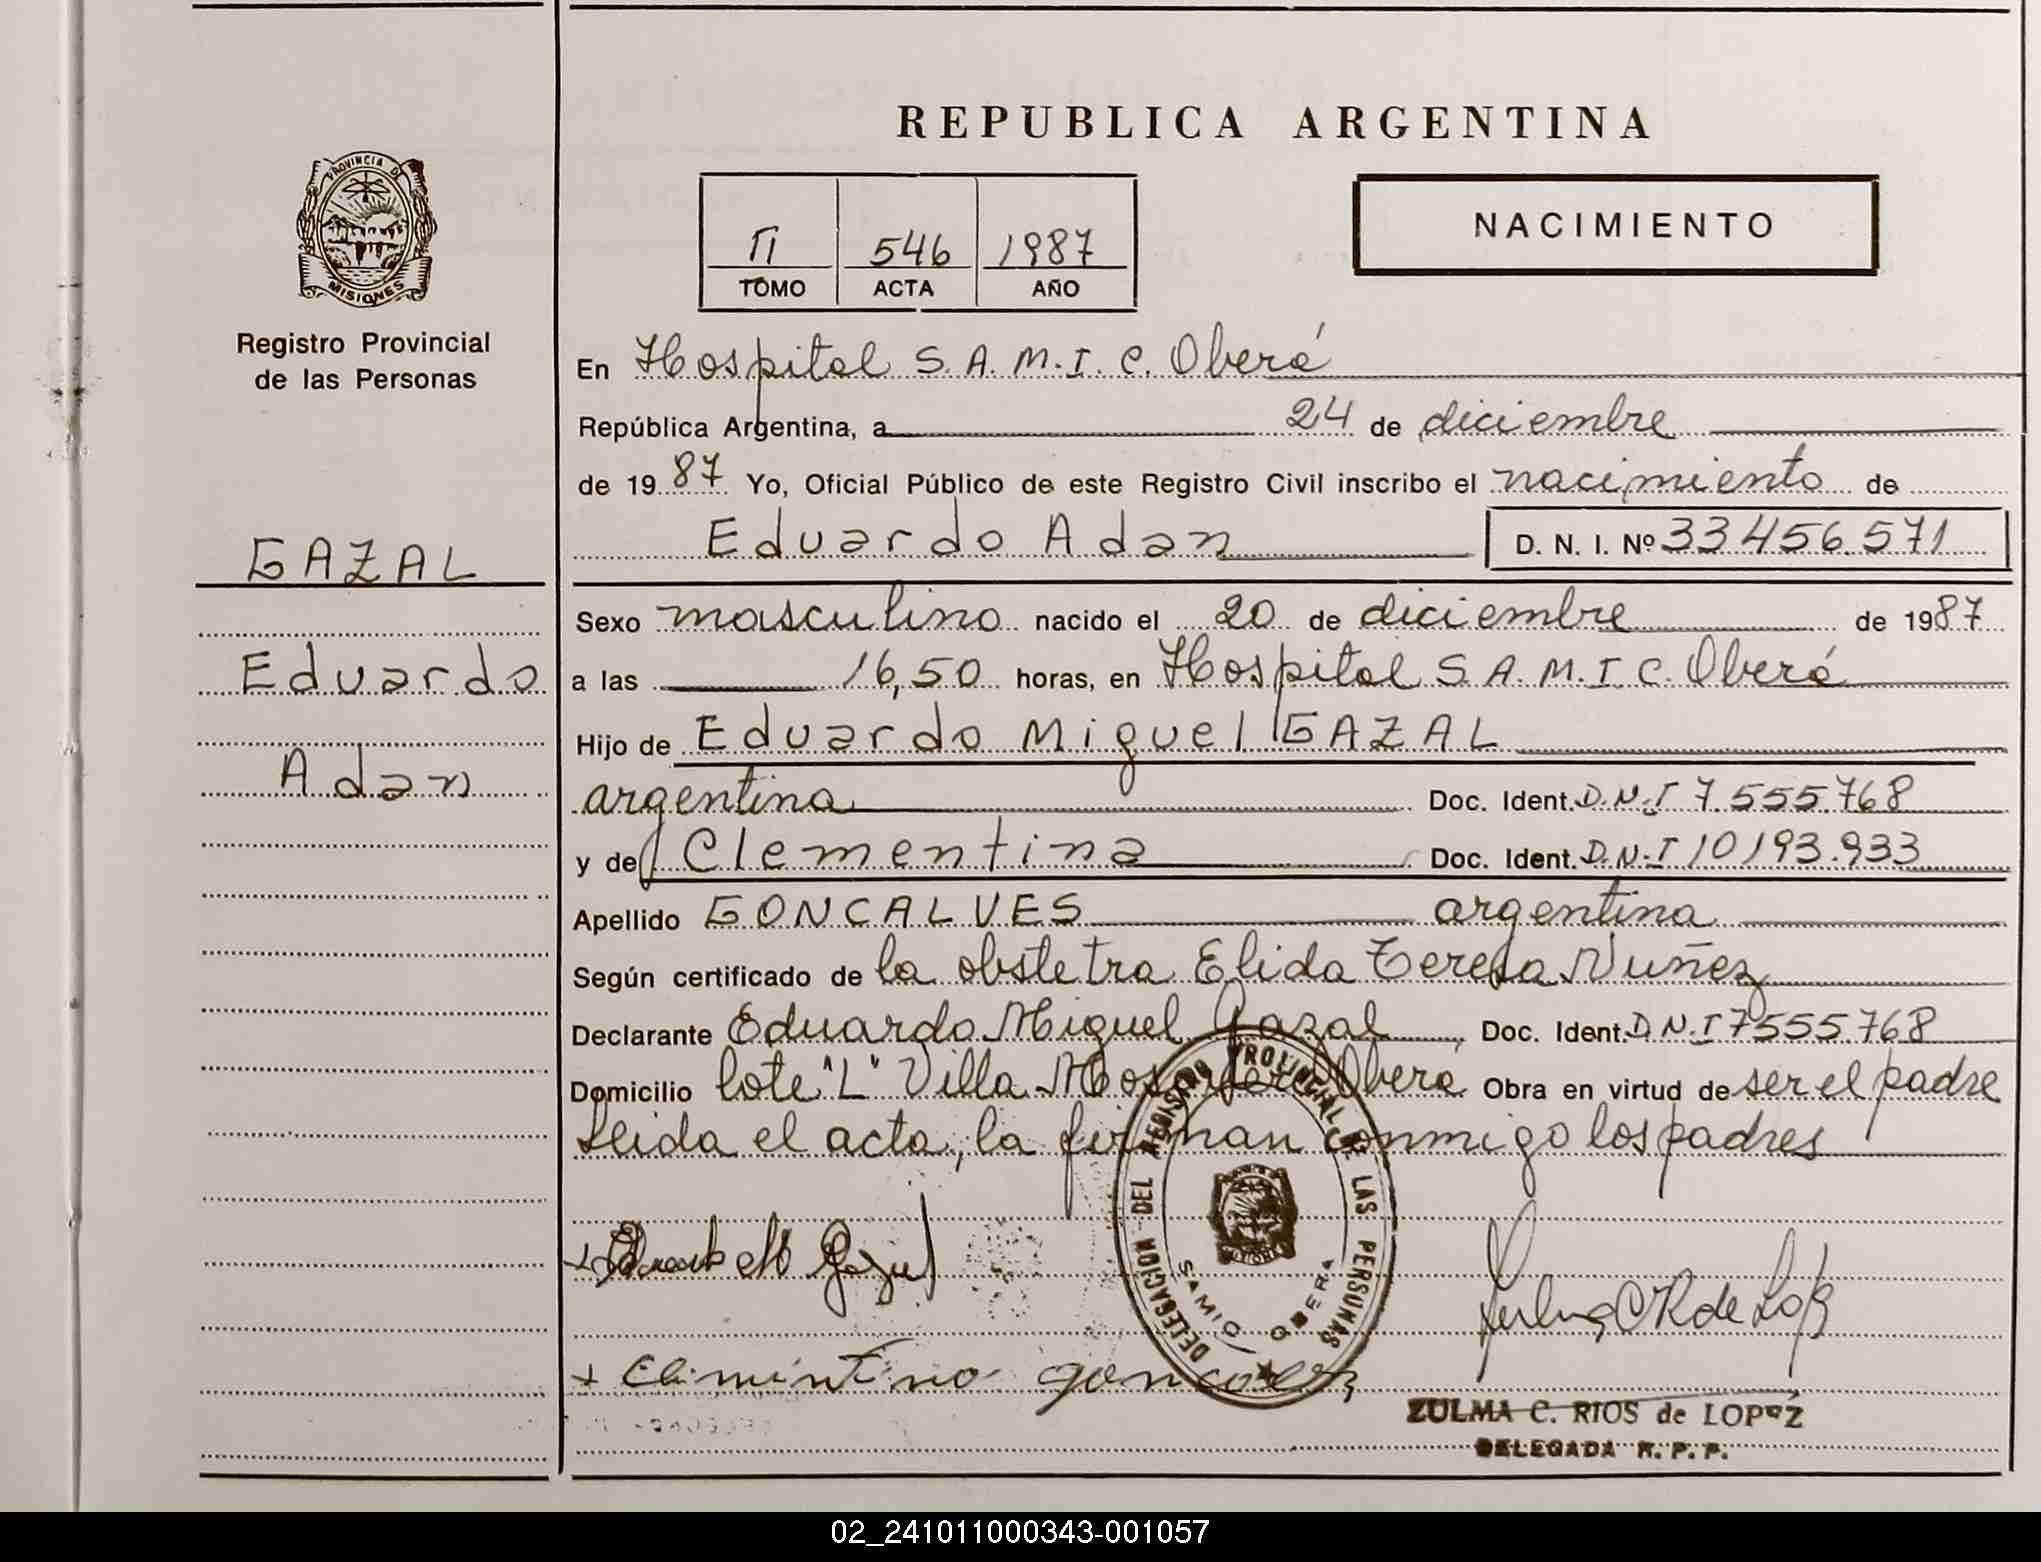 REPUBLICA ARGENTINA
PROVINCIA DE
MISIONES
Registro Provincial
de las Personas
II 546 1987
TOMO ACTA AÑO
NACIMIENTO
En Hospital S.A.M.I.C. Oberá
República Argentina, a 24 de diciembre
de 1987 Yo, Oficial Público de este Registro Civil inscribo el nacimiento de
Eduardo Adan D. N. I. Nº 33456.571
GAZAL
Eduardo
Adan
Sexo masculino nacido el 20 de diciembre de 1987
a las 16,50 horas, en Hospital S.A.M.I.C. Oberá
Hijo de Eduardo Miguel GAZAL
argentina Doc. Ident. D.N.I 7.555.768
y de Clementina Doc. Ident. D.N.I 10193.933
Apellido GONCALVES argentina
Según certificado de la obstetra Elida Teresa Nuñez
Declarante Eduardo Miguel Gazal Doc. Ident. D.N.I 7555.768
Domicilio lote "L" Villa Oberá Obra en virtud de ser el padre
Leida el acta, la firman conmigo los padres
DELEGACION DEL REGISTRO PROVINCIAL DE LAS PERSONAS
SAMIC OBERA
MISIONES
Eduardo M Gazal
ZULMA C. RIOS de LOPEZ
DELEGADA R. P. P.
02_241011000343-001057